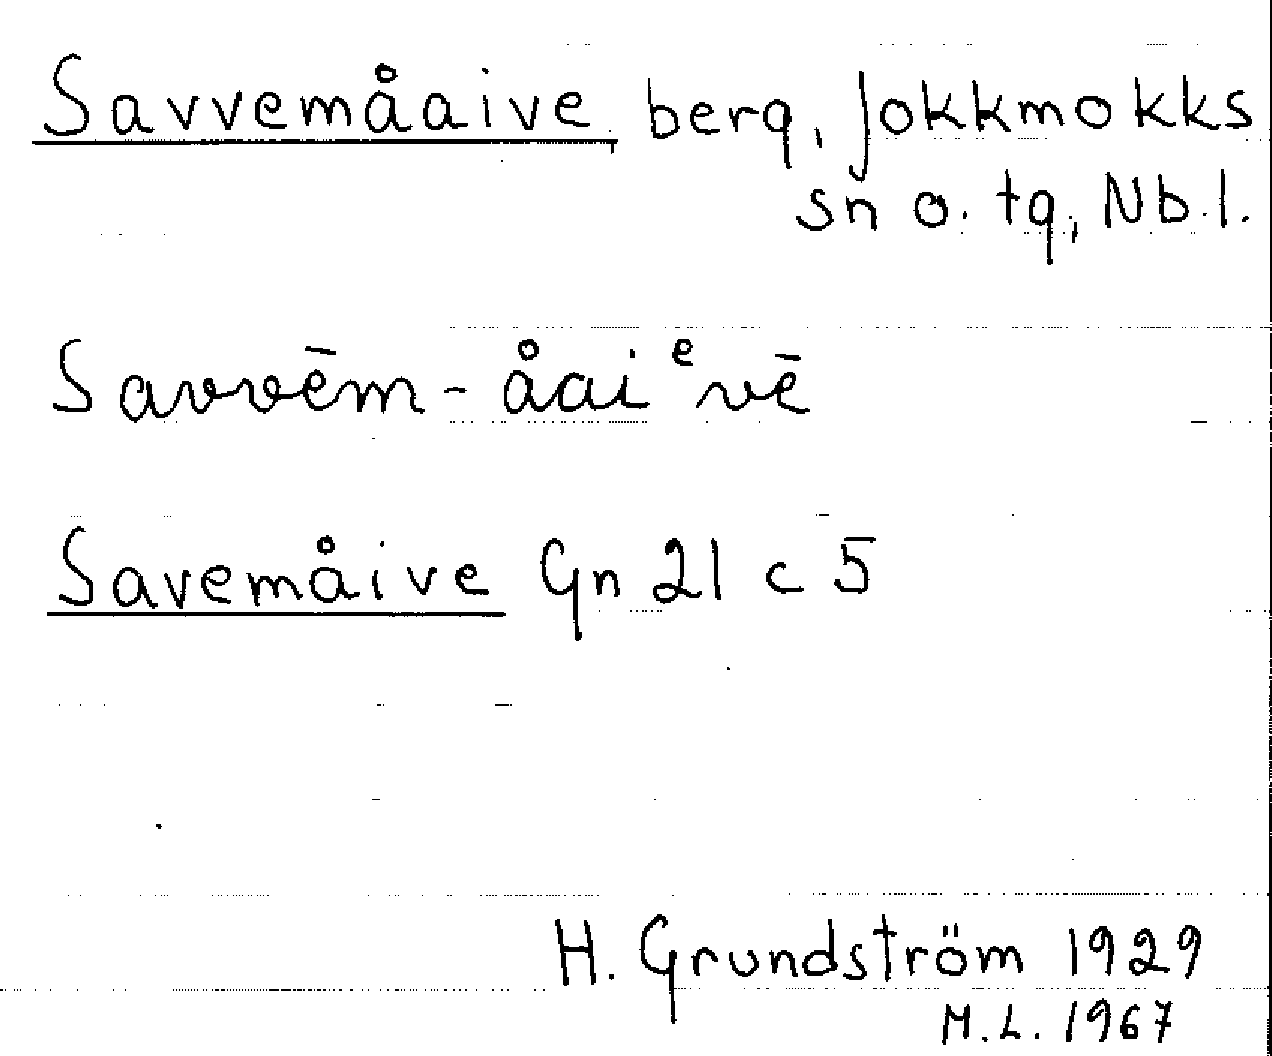 Savvemåaive berg, Jokkmokks
sn o. tg, Nb.l.
Savvēm-åaiᵉvē
Savemåive Gn 21 c 5
H. Grundström 1929
M.L. 1967